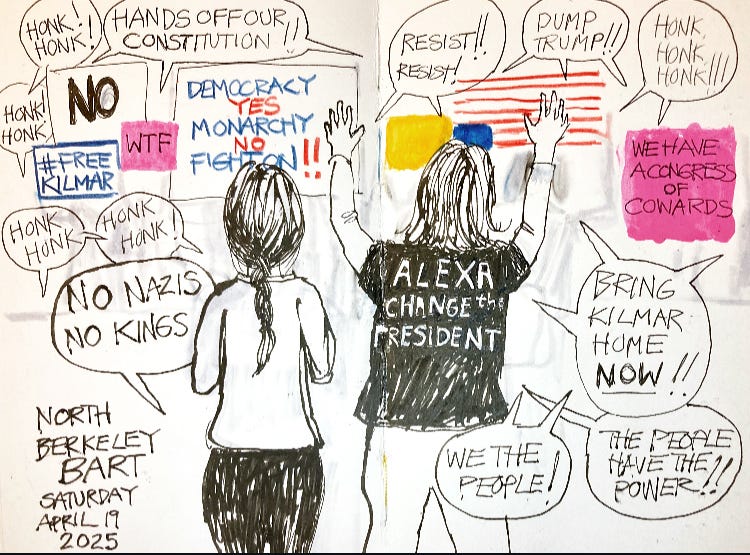 HONK!
HONK!
HANDS OFF OUR
CONSTITUTION!!
RESIST!!
RESIST!
DUMP
TRUMP!!
HONK,
HONK,
HONK!!!
HONK!
HONK,
NO
WTF
#FREE
KILMAR
DEMOCRACY
YES
MONARCHY
NO
FIGHT ON!!
WE HAVE
A CONGRESS
OF
COWARDS
HONK
HONK
HONK
HONK!
NO NAZIS
NO KINGS
ALEXA
CHANGE the
PRESIDENT
BRING
KILMAR
HOME
NOW!!
WE THE
PEOPLE!
THE PEOPLE
HAVE THE
POWER!!
NORTH
BERKELEY
BART
SATURDAY
APRIL 19
2025